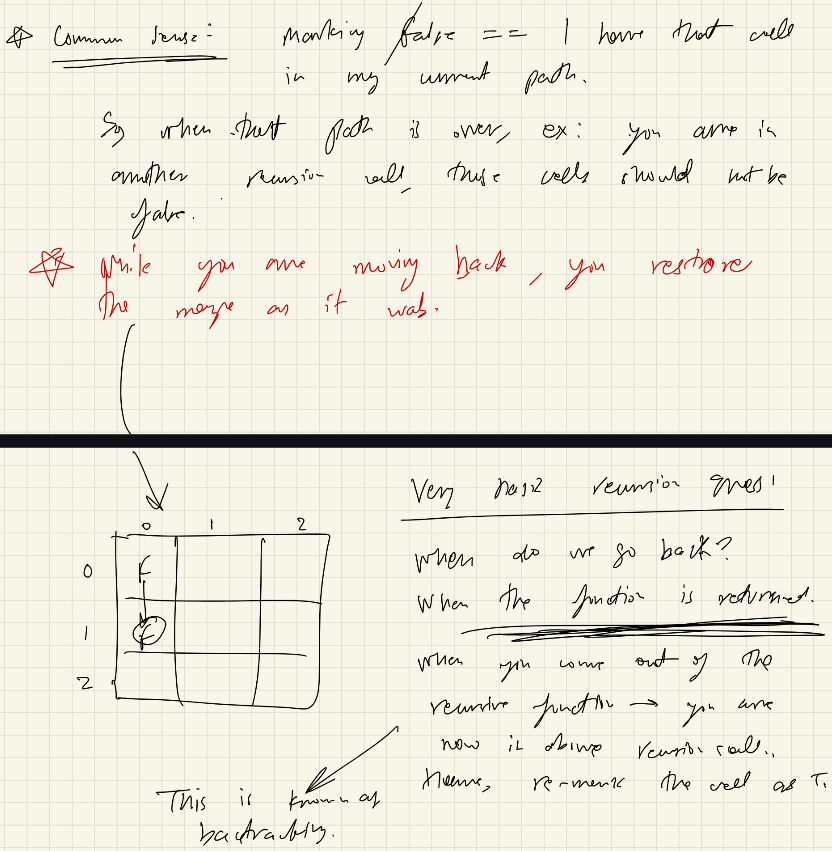 Common sense:- Marking false == I have that cell
in my current path.
So when that path is over, ex: you are in
another recursion call, these cells should not be
false.
While you are moving back, you restore
the maze as it was.
Very basic recursion ques!
When do we go back?
When the function is returned.
When you come out of the
recursive function → you are
now in above recursion call.
Hence, re-mark the cell as T.
0 1 2
0 F
1 F
2
This is known as
backtracking.